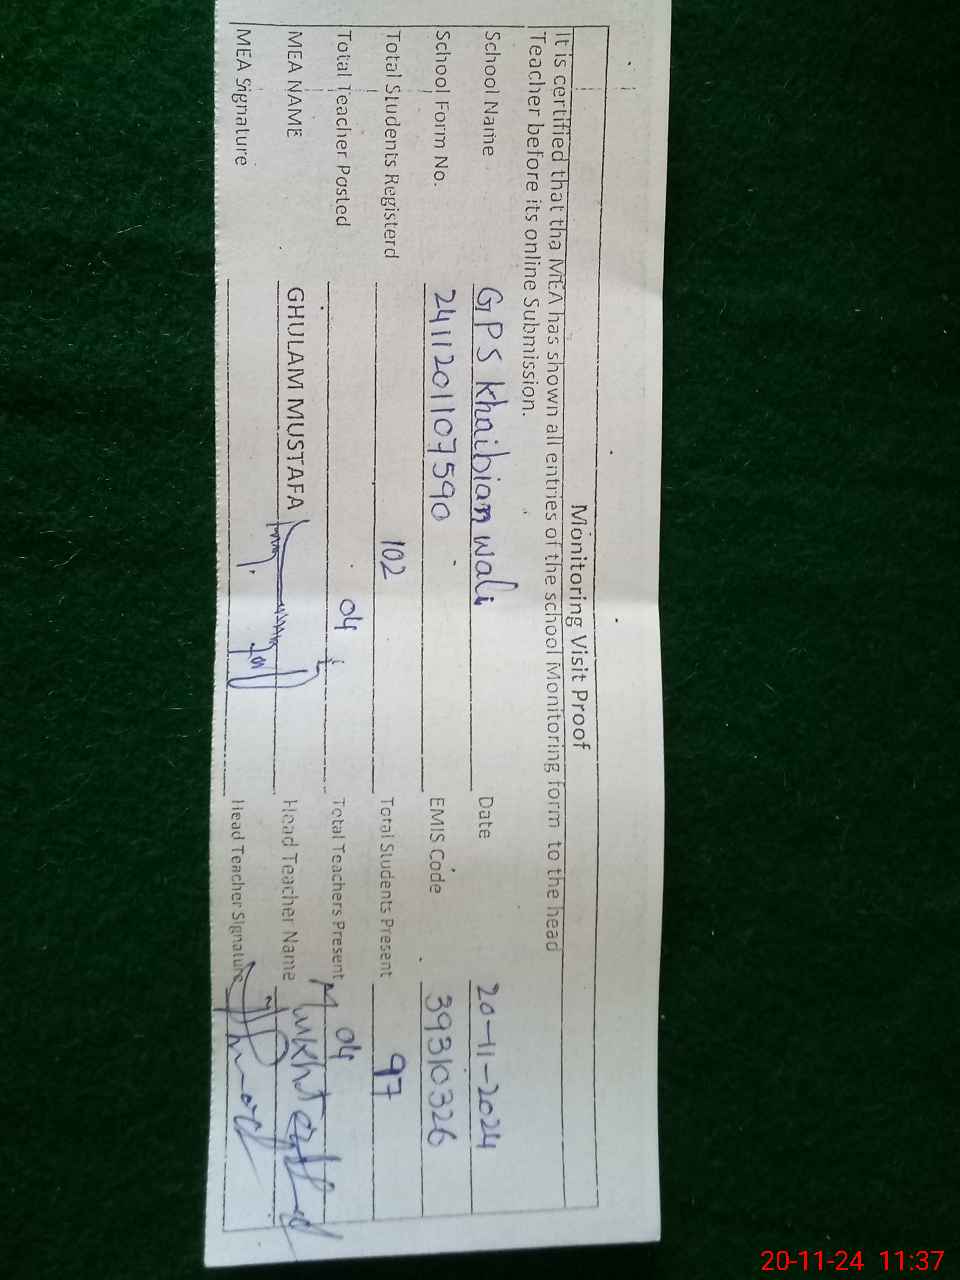 Monitoring Visit Proof
It is certified that tha MEA has shown all entries of the school Monitoring form to the head
Teacher before its online Submission.
School Name GPS Khaibian wali Date 20-11-2024
School Form No. 2411201107590 EMIS Code 39310326
Total Students Registerd 102 Total Students Present 97
Total Teacher Posted 04 Total Teachers Present 04
MEA NAME GHULAM MUSTAFA Head Teacher Name
MEA Signature Head Teacher Signature
20-11-24 11:37